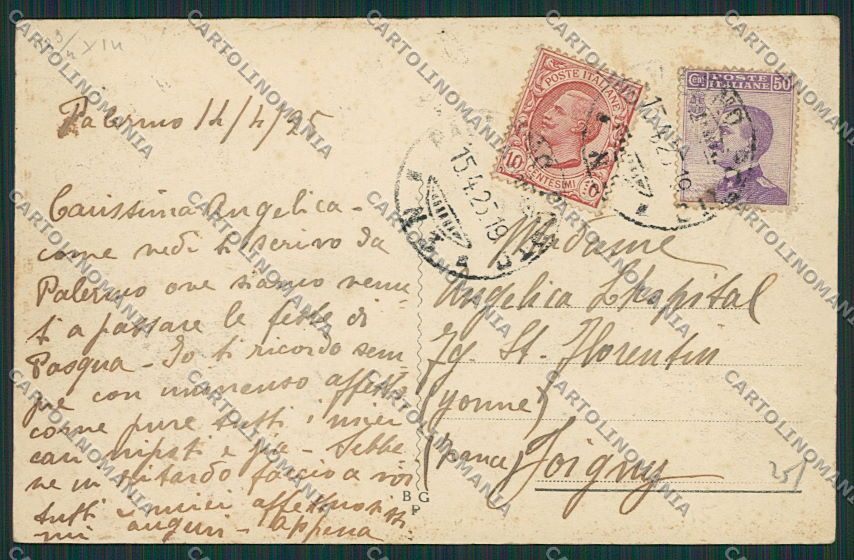 Palermo 14/4/25
Carissima Angelica -
come vedi ti scrivo da
Palermo ove siamo venu-
ti a passare le feste di
Pasqua - Io ti ricordo sem
pre con immenso affetto
come pure tutti i miei
cari nipoti e zia - Sebbe
ne in ritardo faccio a voi
tutti i miei affettuosissi
mi auguri - appena
POSTE ITALIANE
10 CENTESIMI
Cent. 50
POSTE ITALIANE
15.4.25.19
N. 3
Madame
Angelica L'Hopital
St. Florentin
(Yonne)
(France) Joigny
25
B G
P
CARTOLINOMANIA